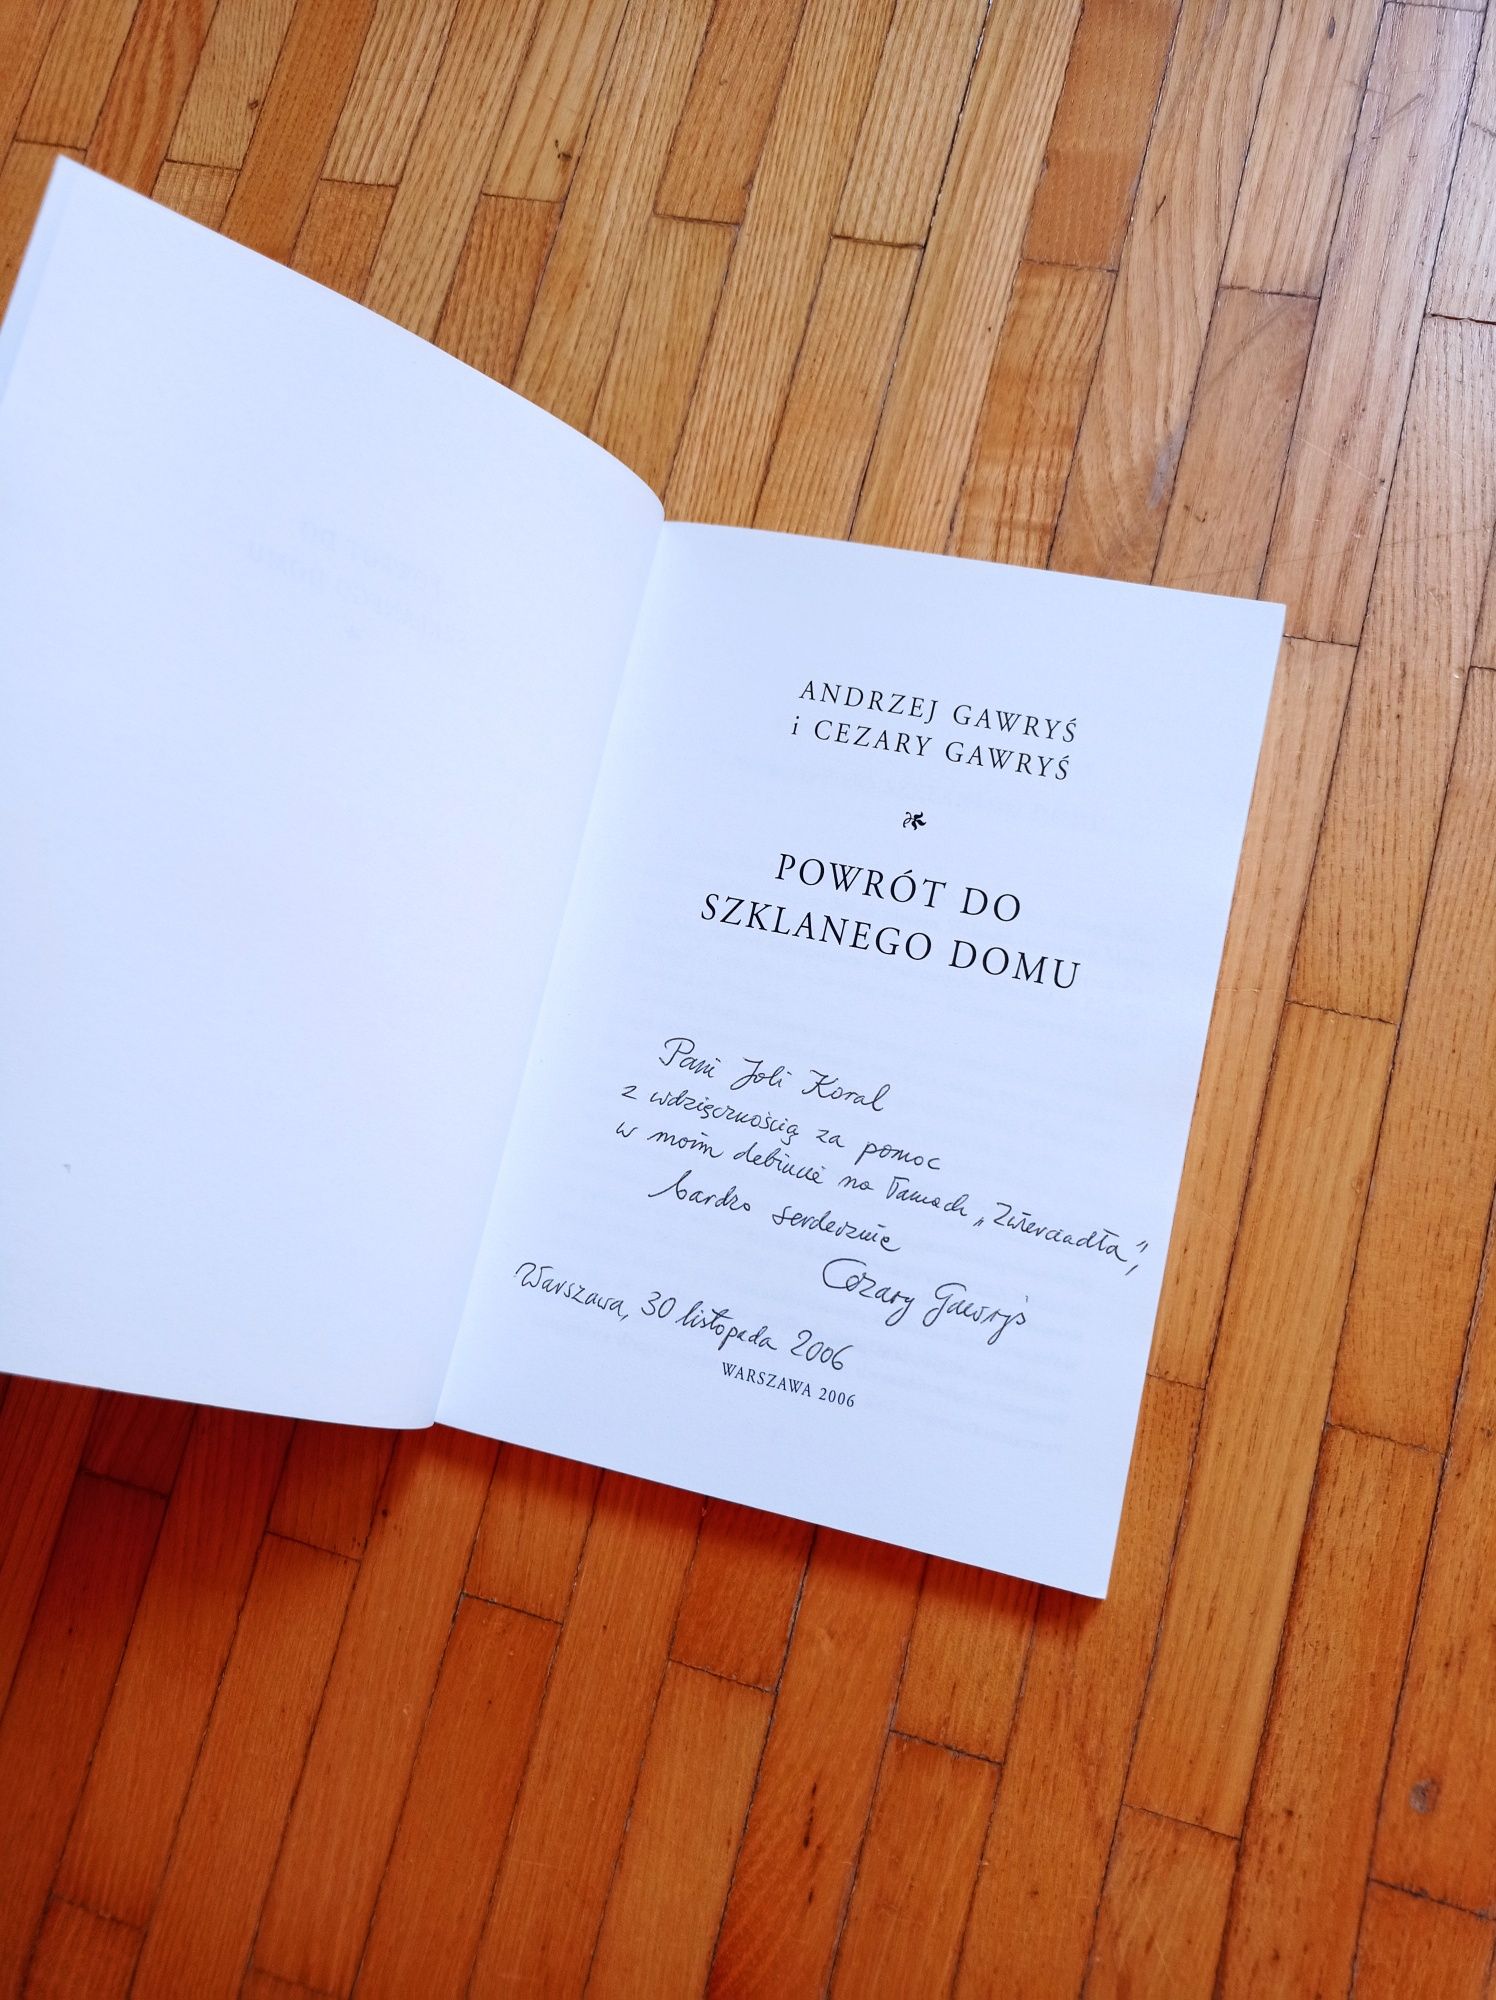 ANDRZEJ GAWRYŚ
i CEZARY GAWRYŚ
POWRÓT DO
SZKLANEGO DOMU
Pani Joli Koral
z wdzięcznością za pomoc
w moim debiucie na łamach „Zwierciadła”,
bardzo serdecznie
Cezary Gawryś
Warszawa, 30 listopada 2006
WARSZAWA 2006